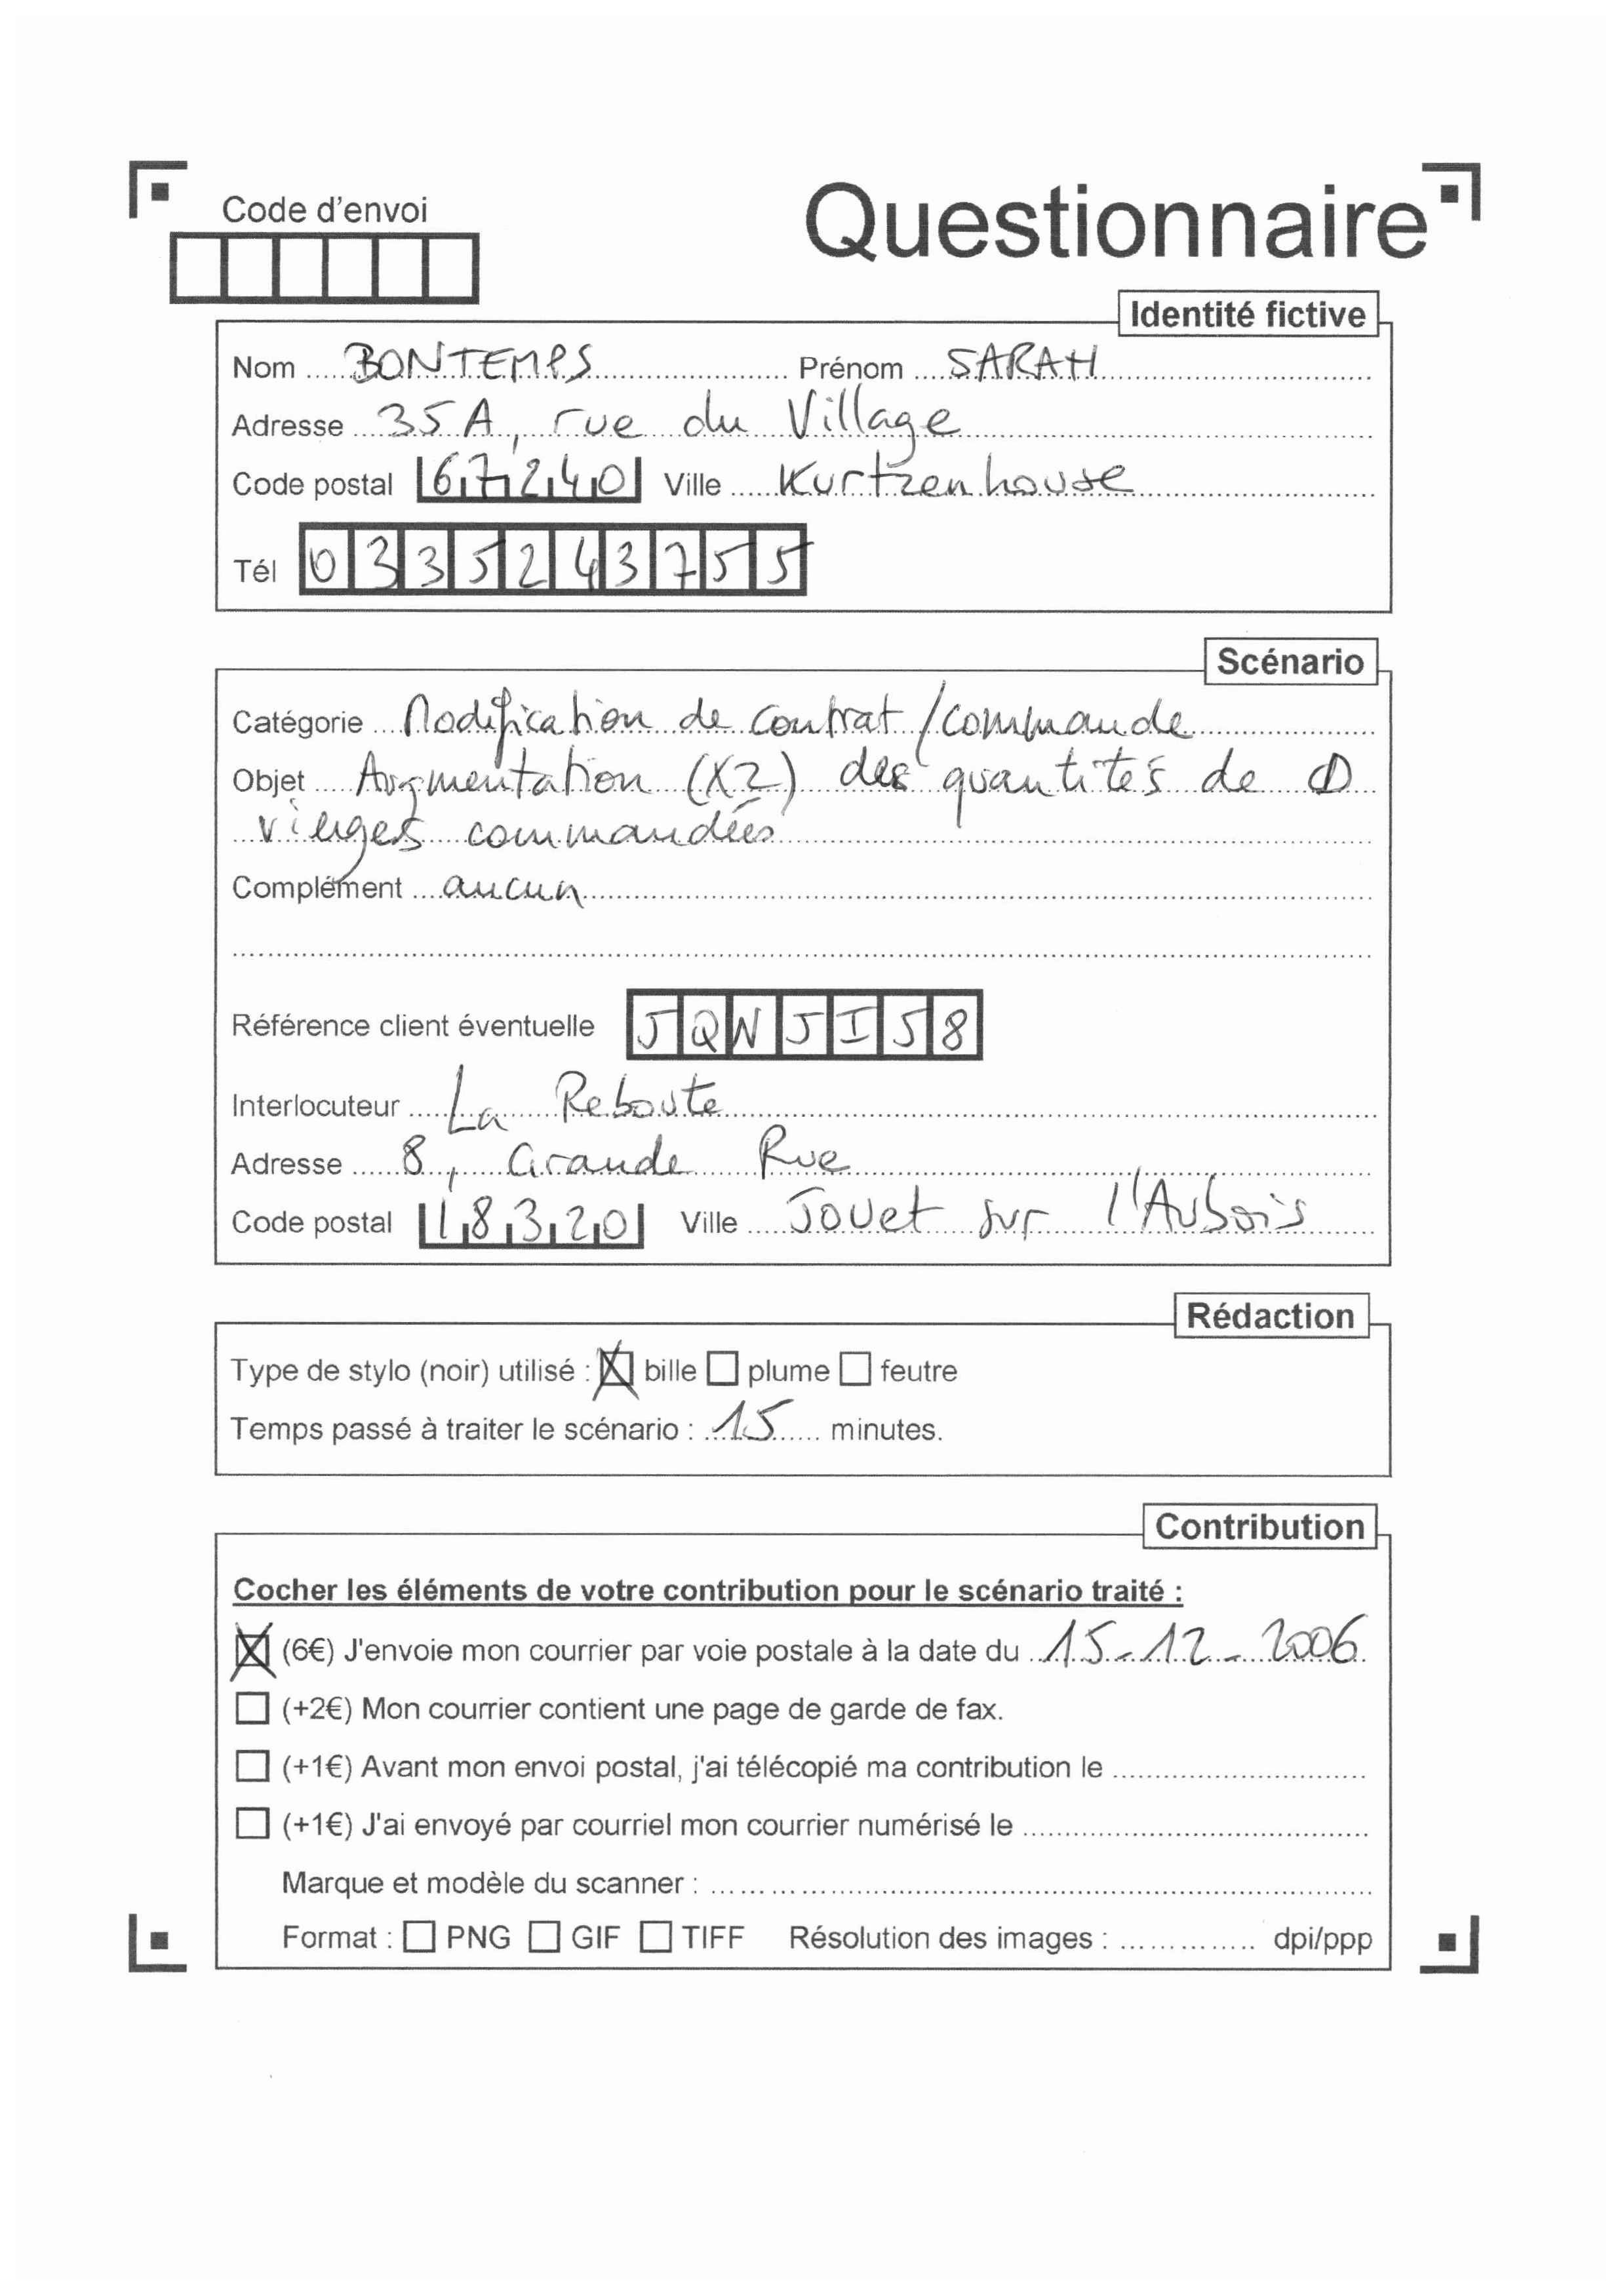 Code d'envoi
Questionnaire
Identité fictive
Nom BONTEMPS Prénom SARAH
Adresse 35A, rue du Village
Code postal 67240 Ville Kurtzenhouse
Tél 0335243755
Scénario
Catégorie Modification de contrat/commande
Objet Augmentation (X2) des quantités de CD
vierges commandées
Complément aucun
Référence client éventuelle JQNJI58
Interlocuteur La Reboute
Adresse 8, Grande Rue
Code postal 18320 Ville Jouet sur l'Aubois
Rédaction
Type de stylo (noir) utilisé : bille plume feutre
Temps passé à traiter le scénario : 15 minutes.
Contribution
Cocher les éléments de votre contribution pour le scénario traité :
(6€) J'envoie mon courrier par voie postale à la date du 15-12-2006
(+2€) Mon courrier contient une page de garde de fax.
(+1€) Avant mon envoi postal, j'ai télécopié ma contribution le
(+1€) J'ai envoyé par courriel mon courrier numérisé le
Marque et modèle du scanner :
Format : PNG GIF TIFF Résolution des images : dpi/ppp